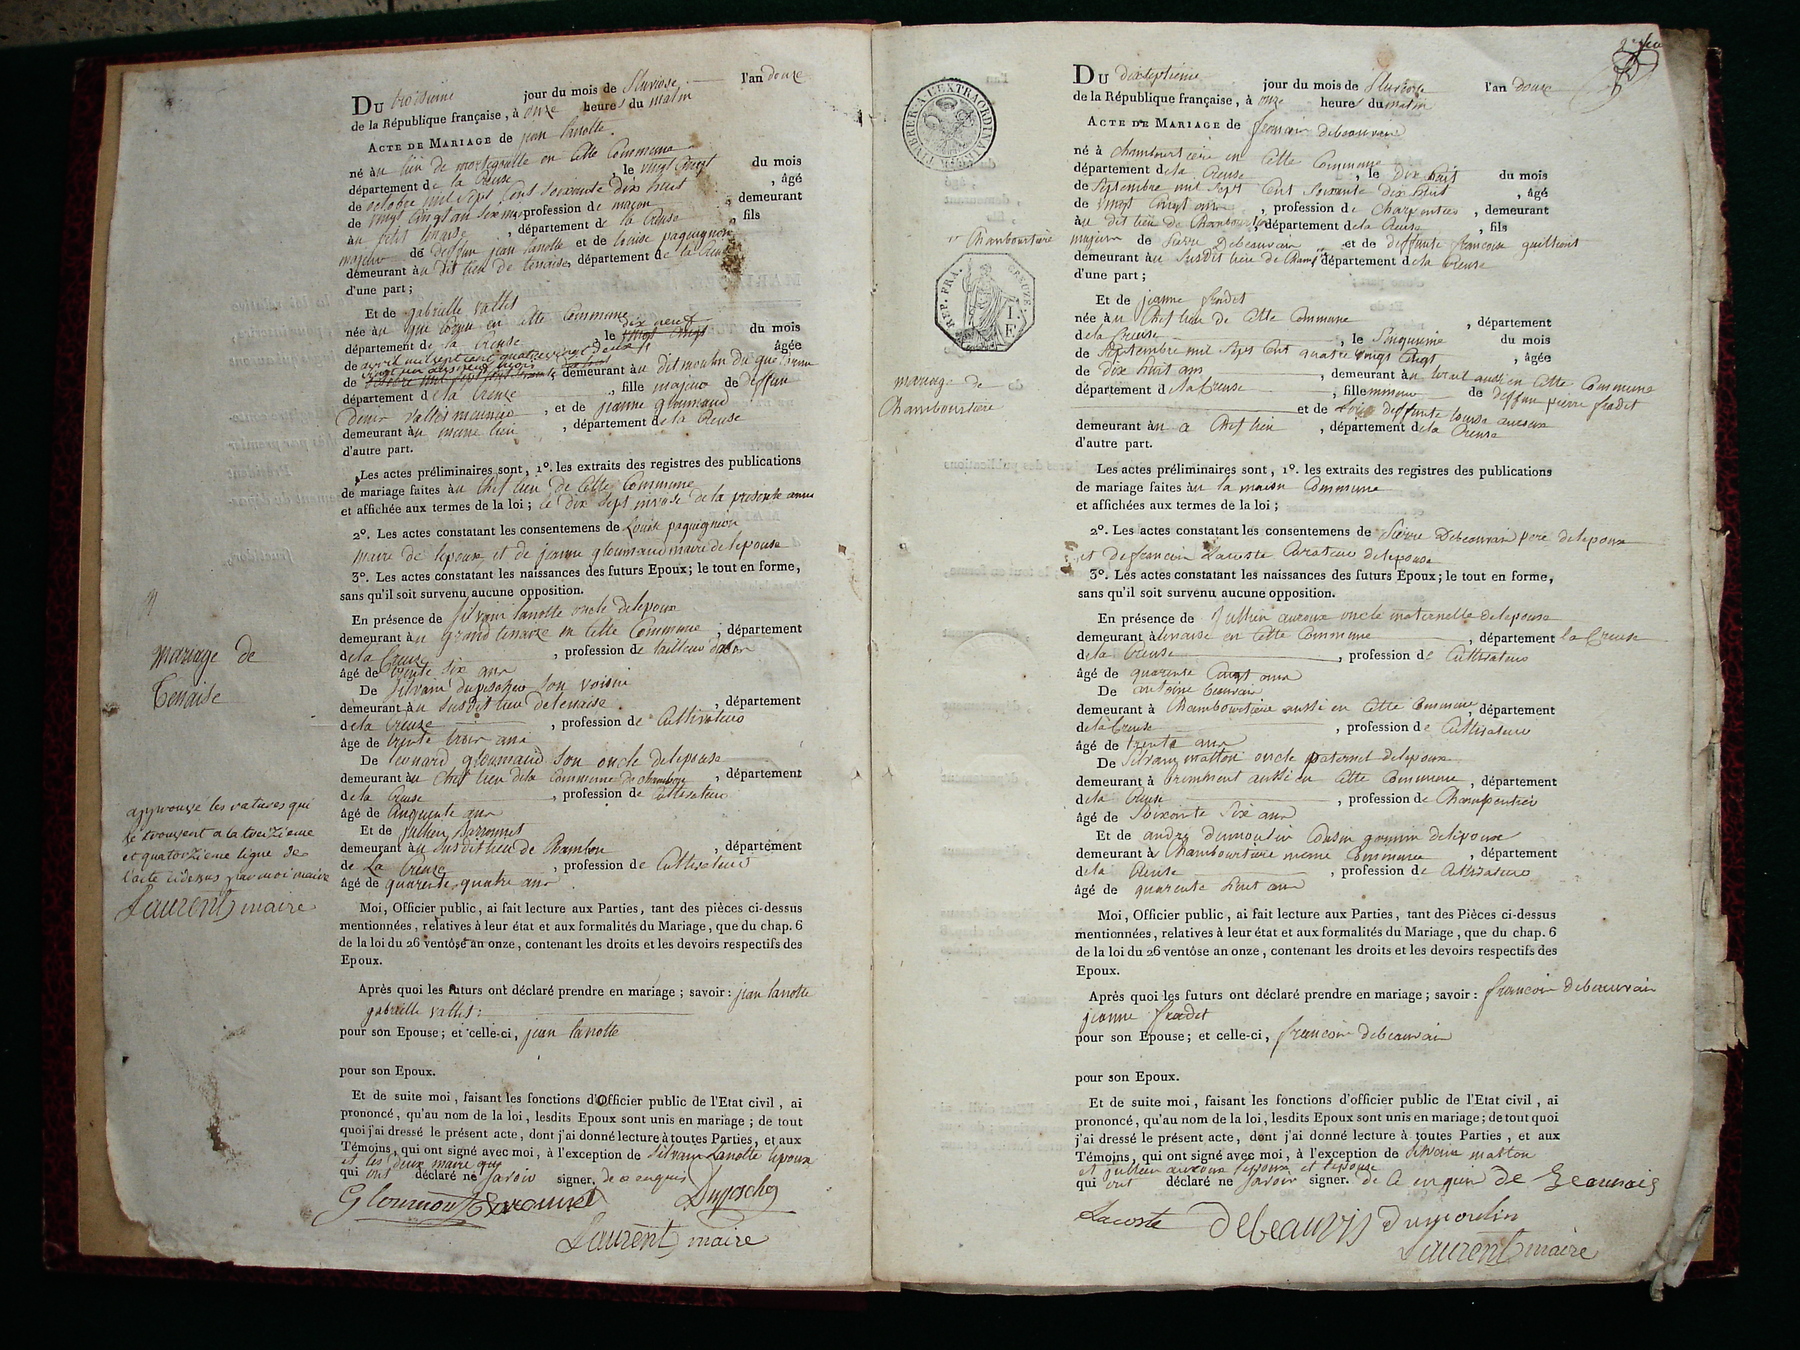 Du troisieme jour du mois de Pluviose l'an douze
de la République française, à onze heures du matin
Acte de Mariage de jean lanotte.
né au lieu de en cette Commune
département de la Creuse, le vingt du mois
de octobre mil sept Cent soixante dix huit, âgé
de vingt cinq an profession de maçon, demeurant
au petit tenaise, département de la Creuse, fils
majeur de deffun jean lanotte et de Louise paquignon
demeurant au dit lieu de tenaise, département de la Creuse
d'une part;
Et de gabrielle vallet
née au en cette Commune
département de la Creuse, le dix neuf du mois
de avril mil sept cent quatre vingt deux âgée
de vingt un ans demeurant au dit moulin du
département de la Creuze, fille majeur de deffun
Denis vallet meunier, et de jeanne gloumaud
demeurant au meme lieu, département de la Creuse
d'autre part.
Les actes préliminaires sont, 1º. les extraits des registres des publications
de mariage faites au chef lieu de Cette Commune
et affichée aux termes de la loi; ce dix sept nivose de la presente annee
2º. Les actes constatant les consentemens de Louise paquignon
maire de lepoux et de jeanne gloumaud maire de lepouse
3º. Les actes constatant les naissances des futurs Epoux; le tout en forme,
sans qu'il soit survenu aucune opposition.
En présence de silvain lanotte oncle delepoux
demeurant au grand tenaize en Cette Commune, département
de la Creuse, profession de tailleur
âgé de trente six ans
De silvain son voisin
demeurant au susdit lieu detenaise, département
de la Creuze, profession de Cultivateur
âge de trente trois ans
De leonard gloumaud son oncle delepouse
demeurant au Chef lieu dela Commune de chambon, département
de la Creuse, profession de Cultivateur
âgé de Cinquente ans
Et de jullien
demeurant au susdit lieu de Chambon, département
de La Creuze, profession de Cultivateur
âgé de quarente quatre ans
Moi, Officier public, ai fait lecture aux Parties, tant des pièces ci-dessus
mentionnées, relatives à leur état et aux formalités du Mariage, que du chap. 6
de la loi du 26 ventôse an onze, contenant les droits et les devoirs respectifs des
Epoux.
Après quoi les futurs ont déclaré prendre en mariage; savoir: jean lanotte
gabrielle vallet:
pour son Epouse; et celle-ci, jean lanotte
pour son Epoux.
Et de suite moi, faisant les fonctions d'Officier public de l'Etat civil, ai
prononcé, qu'au nom de la loi, lesdits Epoux sont unis en mariage; de tout
quoi j'ai dressé le présent acte, dont j'ai donné lecture à toutes Parties, et aux
Témoins, qui ont signé avec moi, à l'exception de silvain Lanotte lepoux
et les deux maire que
qui ont déclaré ne savoir signer. de ce enquis
Laurent maire
mariage de
Tenaise
approuve les ratures qui
se trouvent a la treizieme
et quatorzieme ligne de
l'acte cidessus par moi maire
Laurent maire
Du dixseptieme jour du mois de Pluviose l'an douze
de la République française, à onze heures du matin
Acte de Mariage de francois debeauvais
né à chamboursiere en Cette Commune
département de la Creuse, le Dix huit du mois
de Septembre mil sept Cent soixante dix huit, âgé
de vingt cinq ans, profession de Charpentier, demeurant
au dit lieu de département de la Creuse, fils
majeur de Pierre Debeauvais et de deffunte francoise
demeurant au susdit lieu de Cham département de la Creuse
d'une part;
Et de jeanne fradet
née au Chef lieu de Cette Commune, département
de la Creuse, le Cinquieme du mois
de Septembre mil sept Cent quatre vingt Cinq, âgée
de dix huit ans, demeurant au aussi en Cette Commune
département de la Creuse, fille mineur de deffun pierre fradet
et de deffunte
demeurant au Chef lieu, département de la Creuse
d'autre part.
Les actes préliminaires sont, 1º. les extraits des registres des publications
de mariage faites au la maison Commune
et affichées aux termes de la loi;
2º. Les actes constatant les consentemens de Pierre Debeauvais pere delepoux
et de francois Lacoste Curateur delepouse
3º. Les actes constatant les naissances des futurs Epoux; le tout en forme,
sans qu'il soit survenu aucune opposition.
En présence de Jullien auroux oncle maternelle delepouse
demeurant à tenaise en Cette Commune, département la Creuse
de la Creuse, profession de Cultivateur
âgé de quarente Cinq ans
De antoine beauvais
demeurant à Chamboursiere aussi en Cette Commune, département
de la Creuse, profession de Cultivateur
âgé de trente ans
De Silvain matton oncle paternel delepoux
demeurant à aussi en Cette Commune, département
de la Creuse, profession de Charpentier
âgé de soixante six ans
Et de andré dumoulin Cousin germin delepoux
demeurant à Chamboursiere meme Commune, département
de la Creuse, profession de Cultivateur
âgé de quarente huit ans
Moi, Officier public, ai fait lecture aux Parties, tant des Pièces ci-dessus
mentionnées, relatives à leur état et aux formalités du Mariage, que du chap. 6
de la loi du 26 ventôse an onze, contenant les droits et les devoirs respectifs des
Epoux.
Après quoi les futurs ont déclaré prendre en mariage; savoir: francois debeauvais
jeanne fradet
pour son Epouse; et celle-ci, francois debeauvais
pour son Epoux.
Et de suite moi, faisant les fonctions d'officier public de l'Etat civil, ai
prononcé, qu'au nom de la loi, lesdits Epoux sont unis en mariage; de tout quoi
j'ai dressé le présent acte, dont j'ai donné lecture à toutes Parties, et aux
Témoins, qui ont signé avec moi, à l'exception de silvain matton
et jullien auroux lepoux et lepouse
qui ont déclaré ne savoir signer. de Ce enquis de Beauvais
Lacoste debeauvais dumoulin
Laurent maire
Chamboursiere
mariage de
Chamboursiere
TIMBRER A L'EXTRAORDINAIRE
REP. FRA. CREUZE